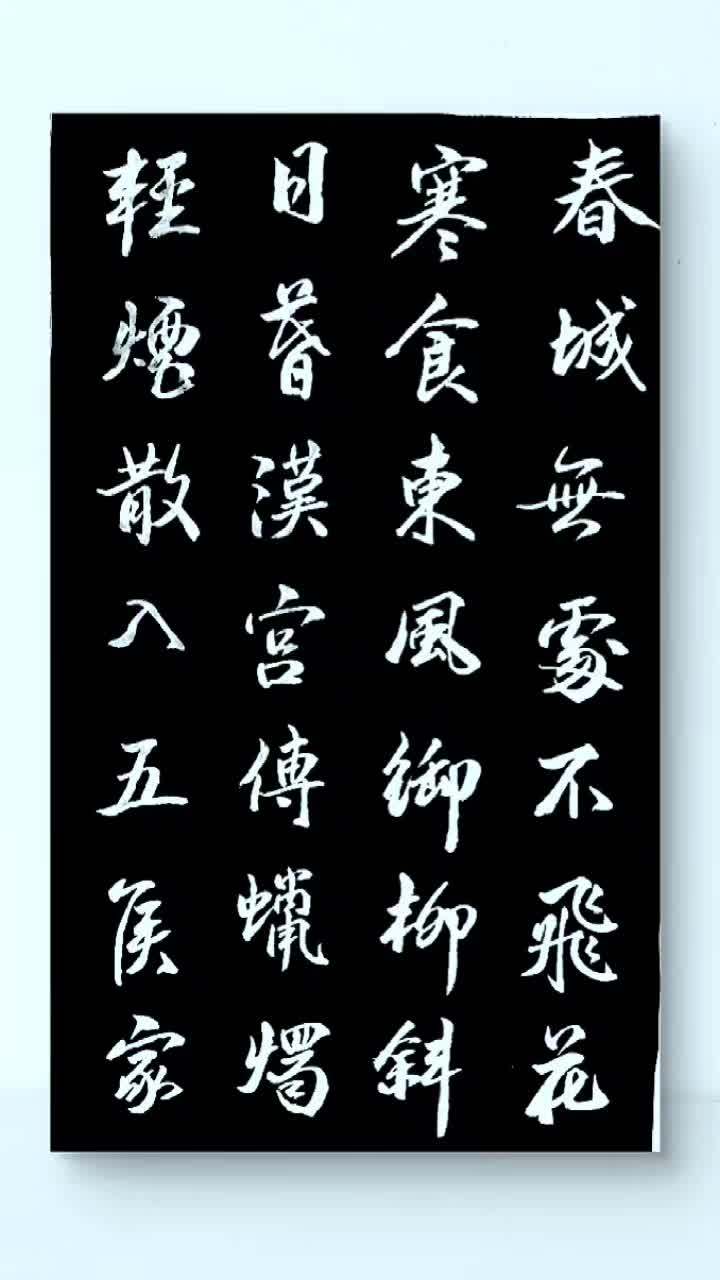 春城無處不飛花
寒食東風御柳斜
日暮漢宮傳蠟燭
輕煙散入五侯家